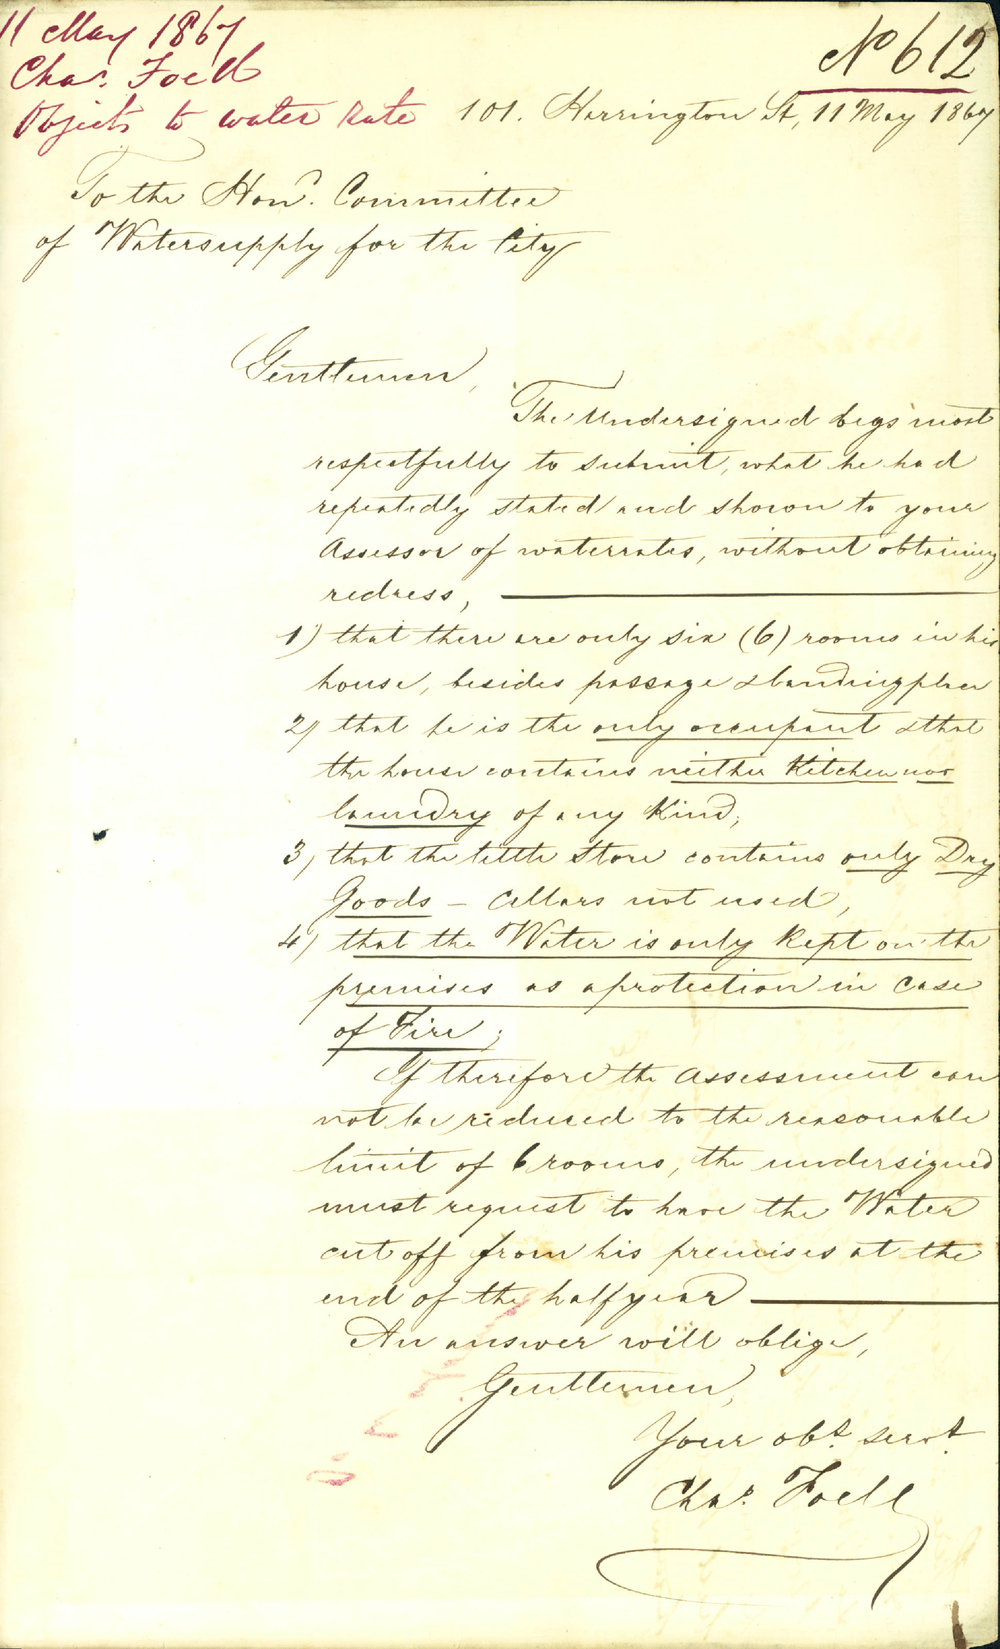 11 May 1867
Chas. Foell
Objects to water Rate
No 612
101. Harrington St, 11 May 1867
To the Hond. Committee
of Watersupply for the City
Gentlemen,
The Undersigned begs most
respectfully to submit, what he had
repeatedly stated and shown to your
Assessor of waterrates, without obtaining
redress,
1) that there are only six (6) rooms in his
house, besides passage & landingplace
2) that he is the only occupant & that
the house contains neither Kitchen nor
laundry of any Kind;
3) that the little Store contains only Dry
Goods – Cellars not used,
4) that the Water is only Kept on the
premises as a protection in case
of Fire;
If therefore the assessment can
not be reduced to the reasonable
limit of 6 rooms, the undersigned
must request to have the Water
cut off from his premises at the
end of the halfyear
An answer will oblige,
Gentlemen,
Your obt. servt.
Chas. Foell